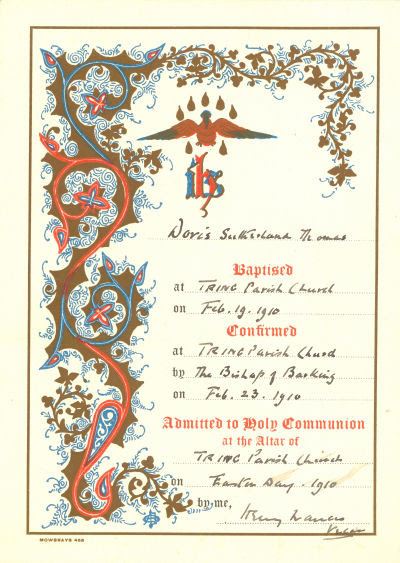 ihs
Doris Sutherland Thomas
Baptised
at TRING Parish Church
on Feb. 19. 1910
Confirmed
at TRING Parish Church
by The Bishop of Barking
on Feb. 23. 1910
Admitted to Holy Communion
at the Altar of
TRING Parish Church
on Easter Day. 1910
by me,
Henry Francis
Vicar
MOWBRAYS 468